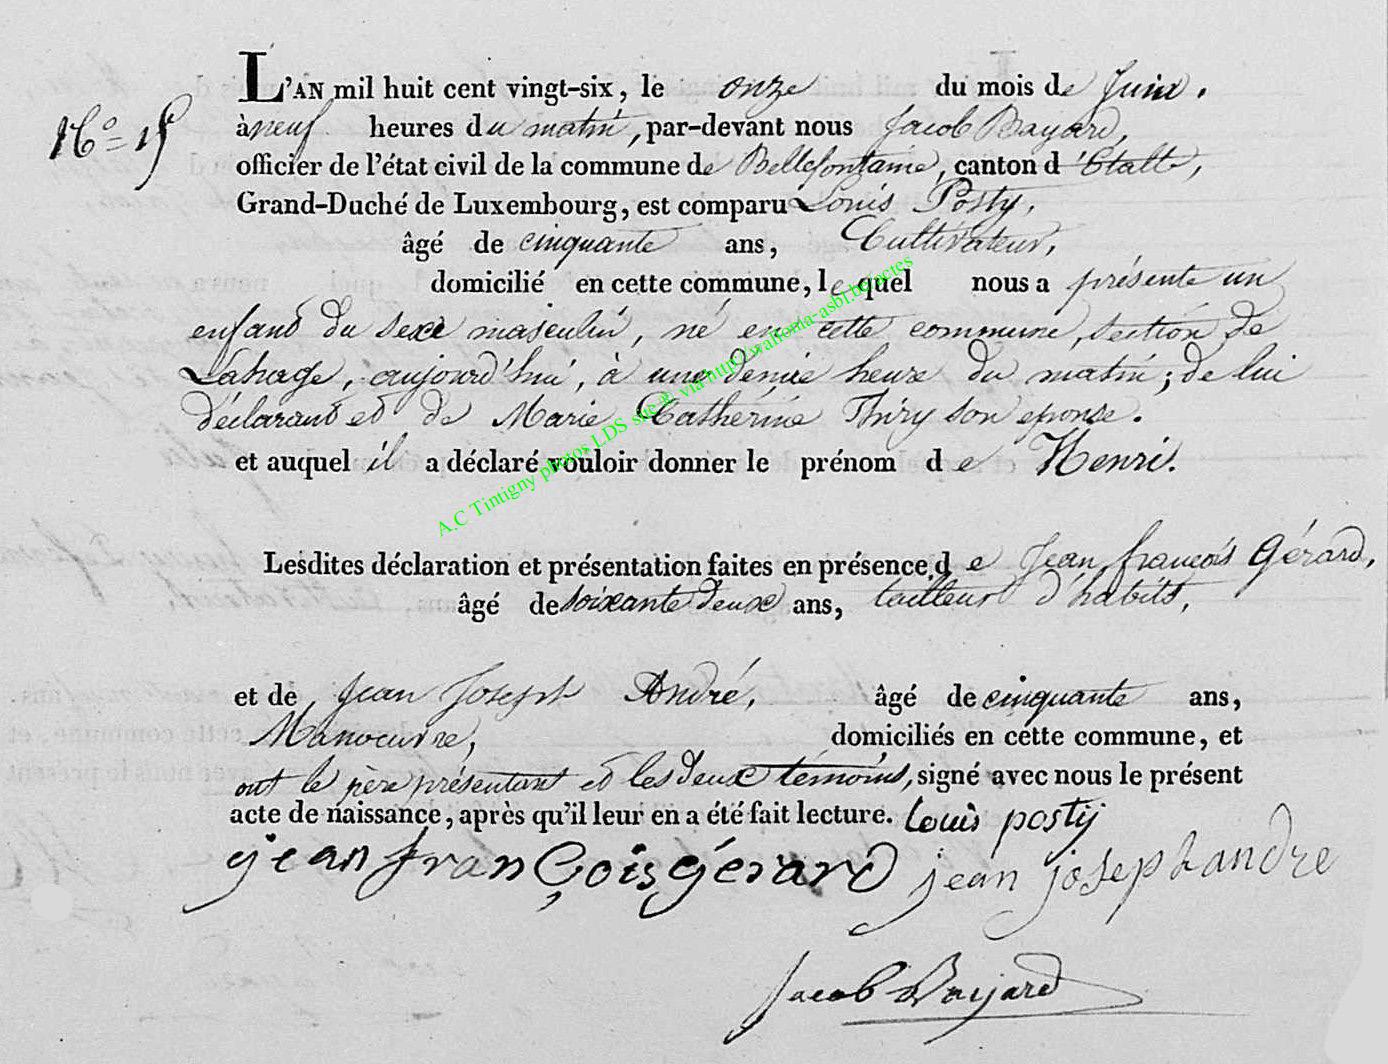 L'AN mil huit cent vingt-six, le onze du mois de Juin.
N.o 15
à neuf heures du matin, par-devant nous Jacob Bayard,
officier de l'état civil de la commune de Bellefontaine, canton d'Etalle,
Grand-Duché de Luxembourg, est comparu Louis Posty,
âgé de cinquante ans, Cultivateur,
domicilié en cette commune, lequel nous a présenté un
enfant du sexe masculin, né en cette commune, section de
Lahage, aujourd'hui, à une demie heure du matin; de lui
déclarant et de Marie Catherine Thiry son epouse.
et auquel il a déclaré vouloir donner le prénom de Henri.
A.C Tintigny photos LDS site via http://wallonia-asbl.be/actes
Lesdites déclaration et présentation faites en présence de Jean françois Gérard,
âgé de soixante deux ans, tailleur d'habits,
et de Jean Joseph André, âgé de cinquante ans,
Manoeuvre, domiciliés en cette commune, et
ont le père présentant et les deux témoins, signé avec nous le présent
acte de naissance, après qu'il leur en a été fait lecture. Louis postÿ
jean françois gérard jean joseph andre
Jacob Baijard